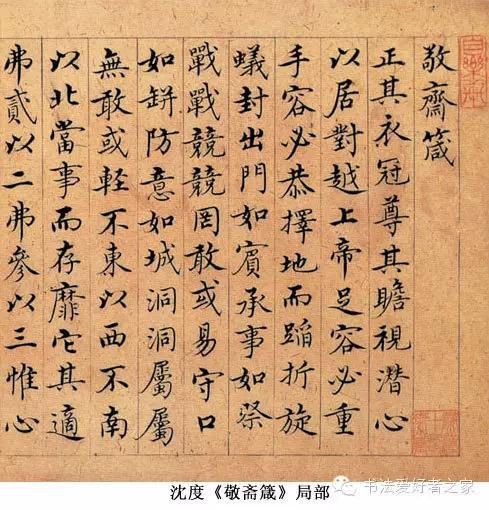 敬齋箴
正其衣冠尊其瞻視潜心
以居對越上帝足容必重
手容必恭擇地而蹈折旋
蟻封出門如賓承事如祭
戰戰競競罔敢或易守口
如缾防意如城洞洞屬屬
無敢或輕不東以西不南
以北當事而存靡它其適
弗貳以二弗參以三惟心
沈度《敬斋箴》局部
书法爱好者之家